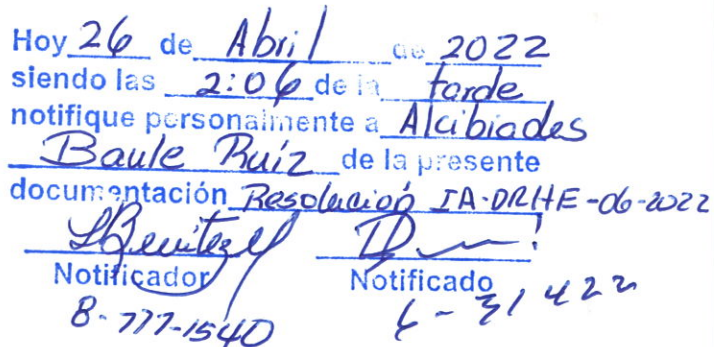 Hoy 26 de Abril de 2022
siendo las 2:06 de la tarde
notifique personalmente a Alcibiades
Baule Ruíz de la presente
documentación Resolución IA-DRHE-06-2022
LBenitez
Notificador Notificado
8-777-1540